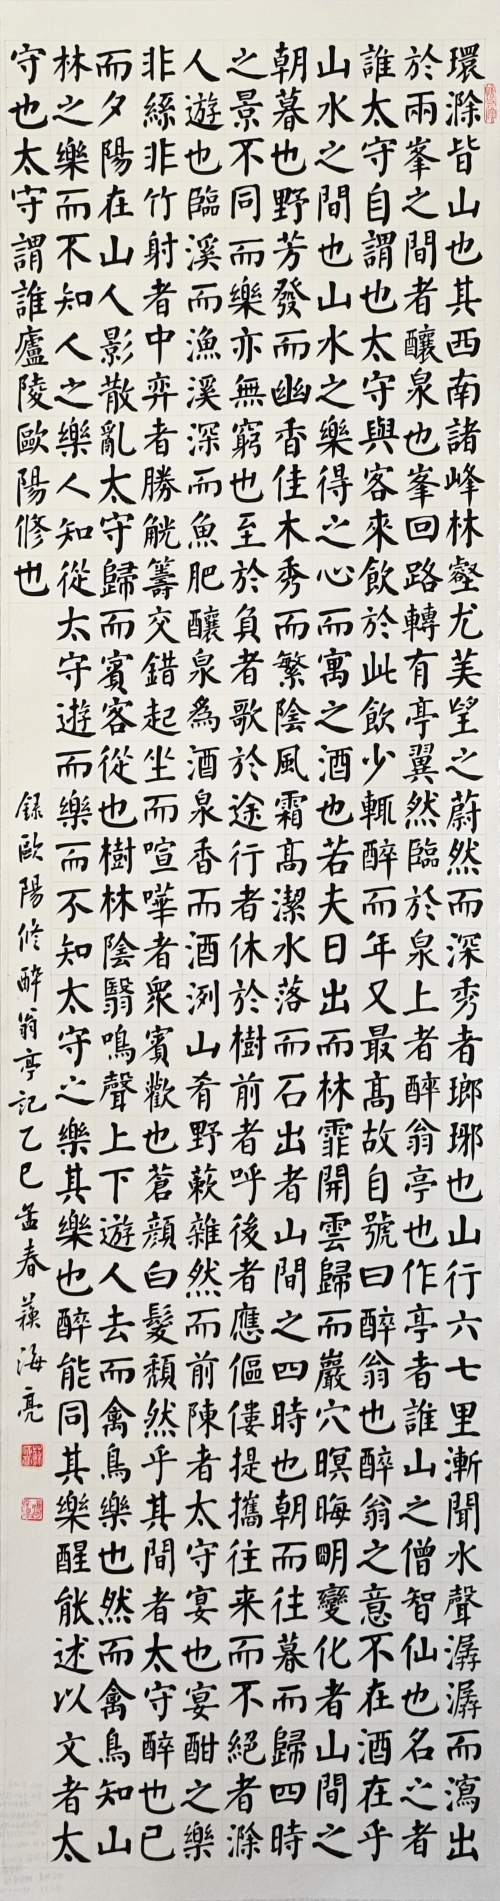 環滁皆山也其西南諸峰林壑尤美望之蔚然而深秀者瑯琊也山行六七里漸聞水聲潺潺而瀉出
於兩峯之間者釀泉也峯回路轉有亭翼然臨於泉上者醉翁亭也作亭者誰山之僧智仙也名之者
誰太守自謂也太守與客來飲於此飲少輒醉而年又最高故自號曰醉翁也醉翁之意不在酒在乎
山水之間也山水之樂得之心而寓之酒也若夫日出而林霏開雲歸而巖穴暝晦明變化者山間之
朝暮也野芳發而幽香佳木秀而繁陰風霜高潔水落而石出者山間之四時也朝而往暮而歸四時
之景不同而樂亦無窮也至於負者歌於途行者休於樹前者呼後者應傴僂提攜往来而不絕者滁
人遊也臨溪而漁溪深而魚肥釀泉為酒泉香而酒洌山肴野蔌雜然而前陳者太守宴也宴酣之樂
非絲非竹射者中弈者勝觥籌交錯起坐而喧嘩者衆賓歡也蒼顏白髮頹然乎其間者太守醉也已
而夕陽在山人影散亂太守歸而賓客從也樹林陰翳鳴聲上下遊人去而禽鳥樂也然而禽鳥知山
林之樂而不知人之樂人知從太守遊而樂而不知太守之樂其樂也醉能同其樂醒能述以文者太
守也太守謂誰廬陵歐陽修也
録歐陽修醉翁亭記乙巳孟春蘇海亮